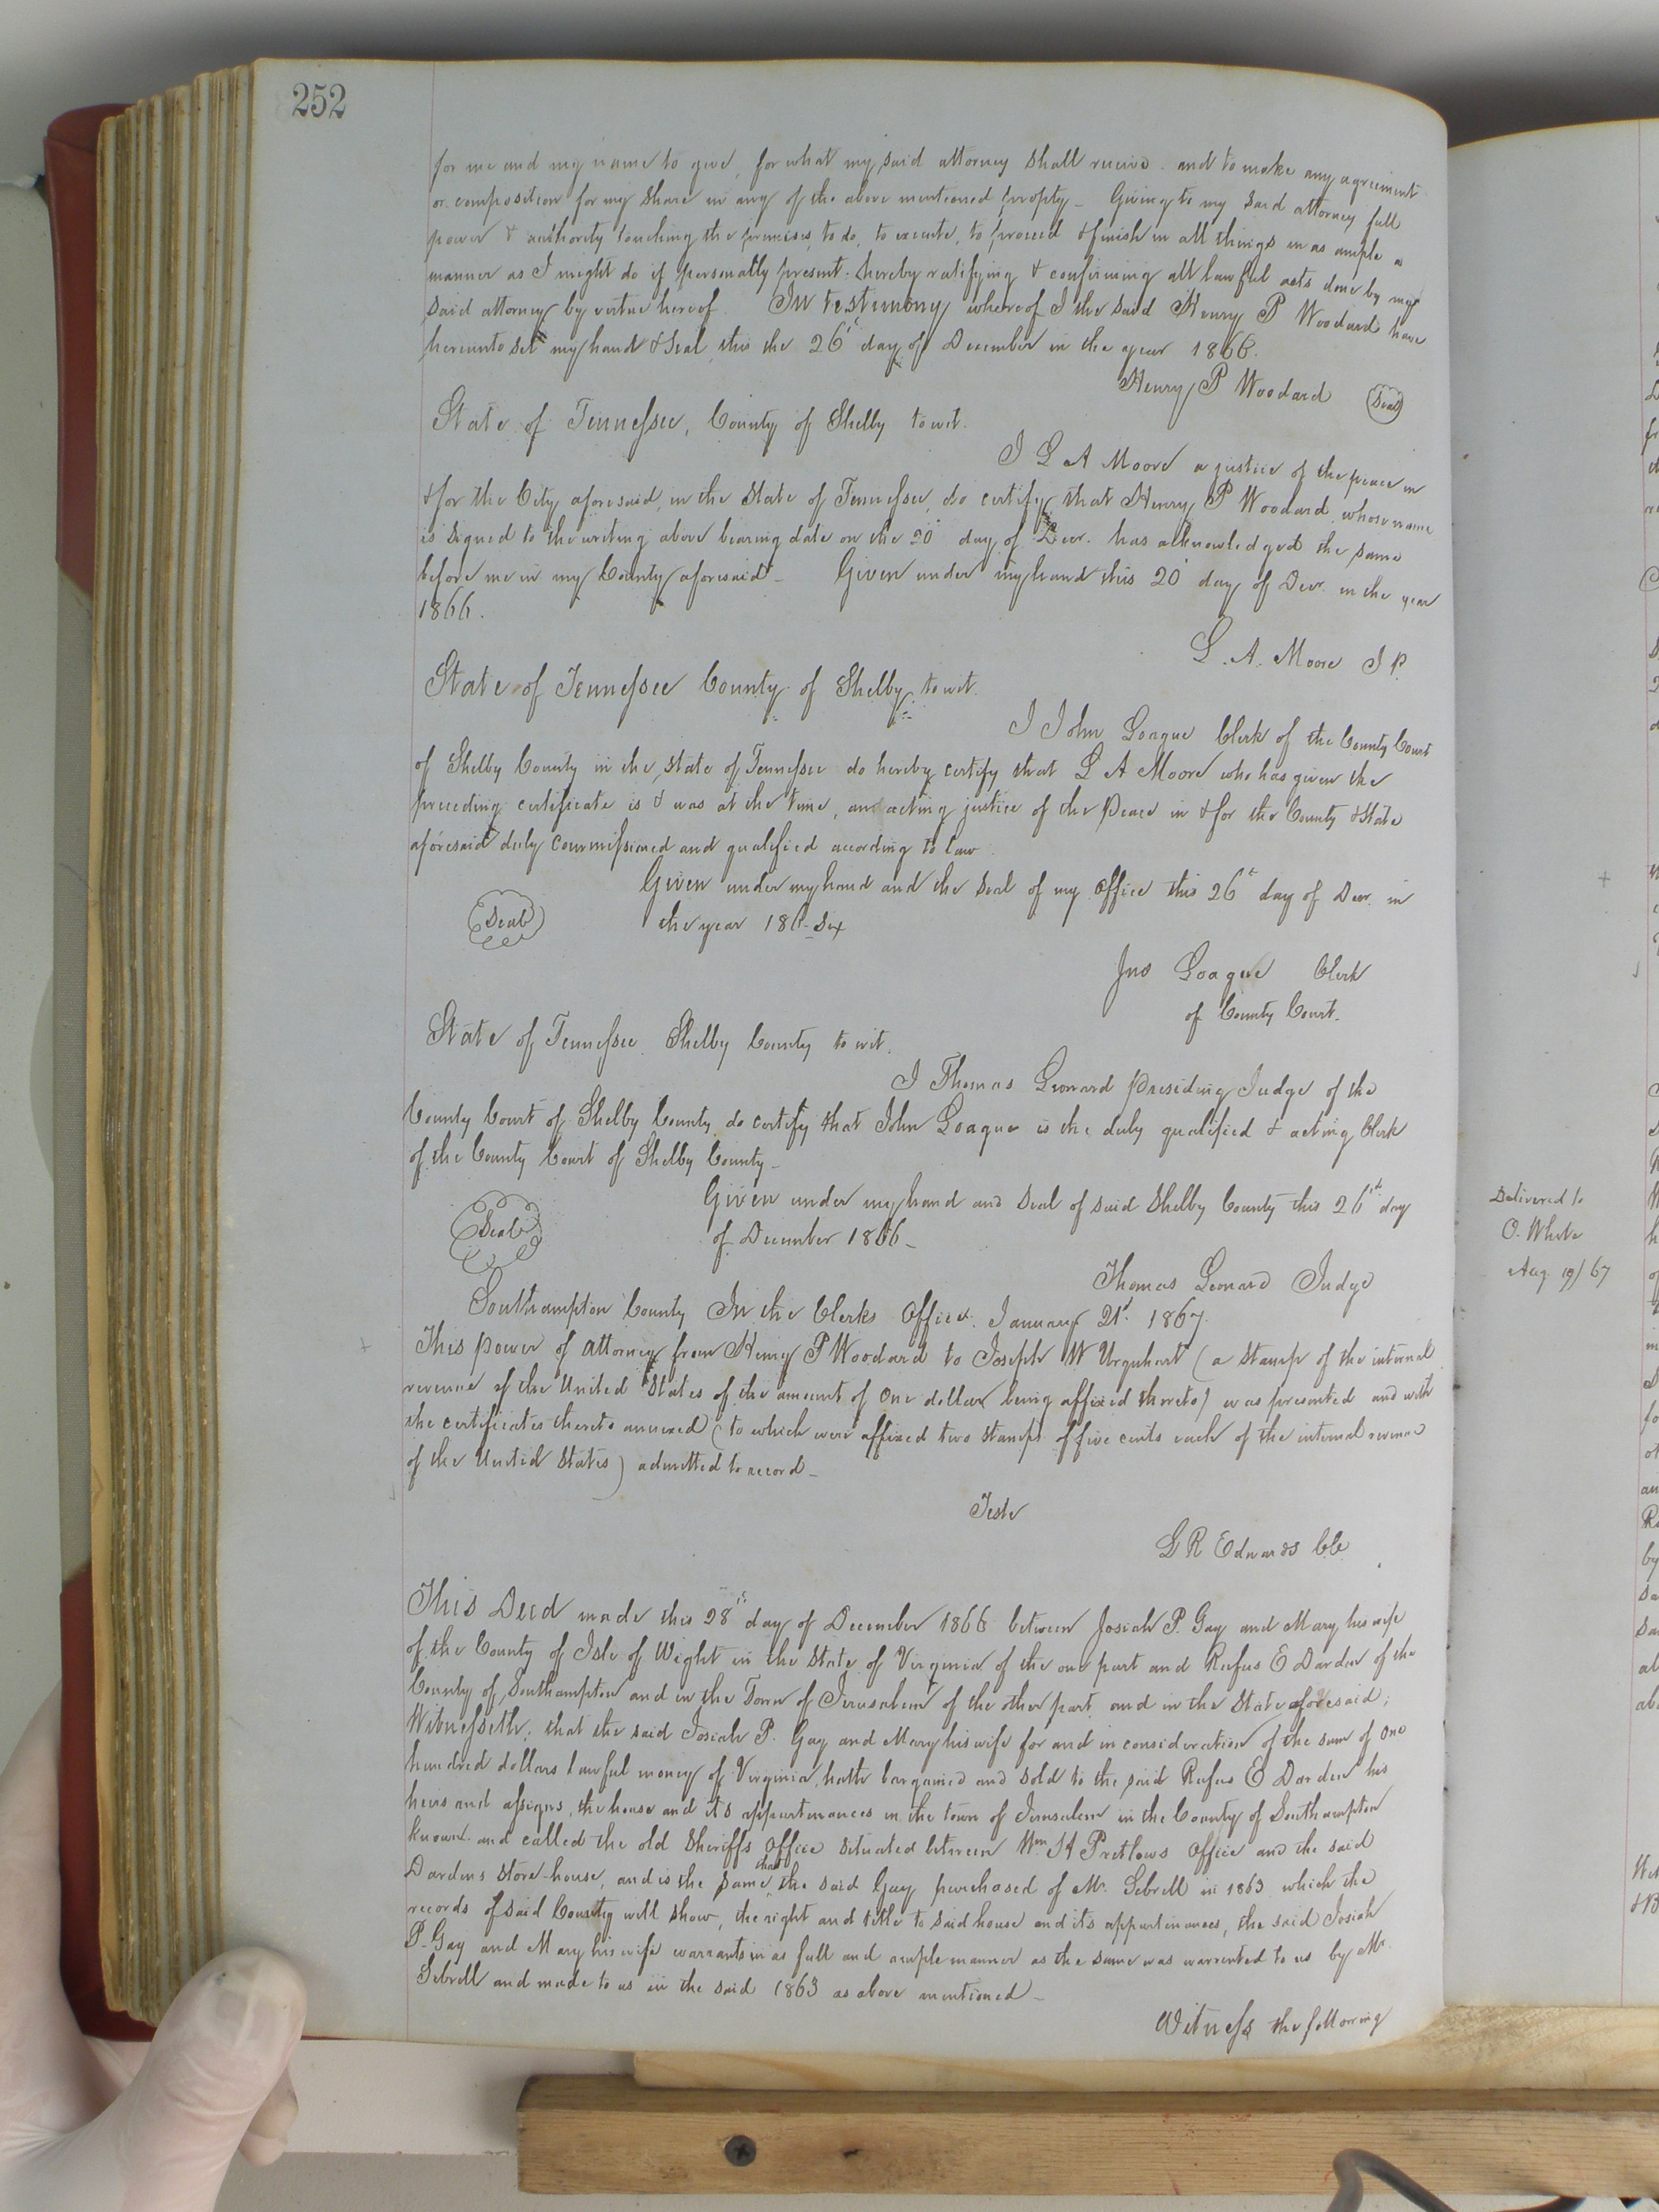 252
for me and my name to give, for what my said attorney shall receive. and to make any agreement
or composition for my share in any of the above mentioned propty_ Giving to my said attorney full
power & authority touching the premises, to do, to execute, to proceed & finish in all things in as ample a
manner as I might do if personally present: hereby ratifying & confirming all lawful acts done by my
said attorney by virtue hereof. In testimony whereof I the said Henry P Woodard have
hereunto set my hand & seal, this the 26th day of December in the year 1866.
Henry P Woodard Seal
State of Tennessee, County of Shelby towit.
I L A Moore a justice of the peace in
& for the City aforesaid, in the State of Tennessee, do certify that Henry P Woodard, whose name
is signed to the writing above bearing date on the 20 day of Decr. has acknowledged the same
before me in my County aforesaid_ Given under my hand this 20 day of Decr. in the year
1866.
L. A. Moore J P.
State of Tennessee County of Shelby, towit.
I John Loague Clerk of the County Court
of Shelby County in the State of Tennessee do hereby certify that L A Moore who has given the
preceding certificate is & was at the time, an acting justice of the Peace in & for the County & State
aforesaid duly commissioned and qualified according to law.
Given under my hand and the seal of my office this 26th day of Decr. in
Seal the year 186-six
Jno Loague Clerk
of County Court.
State of Tennessee. Shelby County to wit.
I Thomas Leonard Presiding Judge of the
County Court of Shelby County, do certify that John Loague is the duly qualified & acting Clerk
of the County Court of Shelby County_
Given under my hand and seal of said Shelby County this 26th day
Seal of December 1866_
Thomas Leonard Judge
Southampton County In the Clerks Office. January 21st 1867.
This power of attorney from Henry P Woodard to Joseph W Urquhart (a stamp of the internal
revenue of the United States of the amount of one dollar being affixed thereto) was presented and with
the certificates thereto annexed (to which were affixed two stamps of five cents each of the internal revenue
of the United States) admitted to record_
Teste
L R Edwards Clk
This Deed made this 28th day of December 1866 between Josiah P. Gay and Mary, his wife
of the County of Isle of Wight in the State of Virginia of the one part and Rufus E Darden of the
County of Southampton and in the Town of Jerusalem of the other part and in the State aforesaid;
Witnesseth; that the said Josiah P. Gay and Mary his wife for and in consideration of the sum of one
hundred dollars lawful money of Virginia, hath bargained and sold to the said Rufus E Darden his
heirs and assigns, the house and its appurtenances in the town of Jerusalem in the County of Southampton
known and called the old Sheriffs Office situated between Wm H Pretlows Office and the said
Dardens Store-house, and is the same that the said Gay purchased of Mr. Sebrell in 1863 which the
records of said County will show, the right and title to said house and its appurtenances, the said Josiah
P. Gay and Mary his wife warrants in as full and ample manner as the same was warrented to us by Mr.
Sebrell and made to us in the said 1863 as above mentioned_
Witness the following
Delivered to
O. White
Aug. 19/67